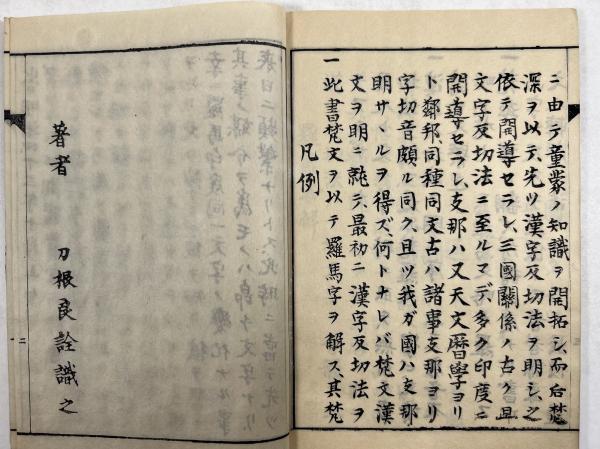 著者 刀根良詮識之
凡例
一此書梵文ヲ以テ羅馬字ヲ解ス、其梵
文ヲ明ニ就テ、最初ニ漢字反切法ヲ
明サヾルヲ得ズ、何トナレバ梵文漢
字切音頗ル同ク、且ツ我ガ國ハ支那
ト鄰邦、同種同文古ハ諸事支那ヨリ
開導セラレ、支那ハ又天文暦學ヨリ
文字反切法ニ至ルマデ、多ク印度ニ
依テ開導セラレ、三國關係ノ古ク且
深ヲ以テ、先ツ漢字反切法ヲ明シ、之
ニ由テ童蒙ノ知識ヲ開拓シ、而后梵